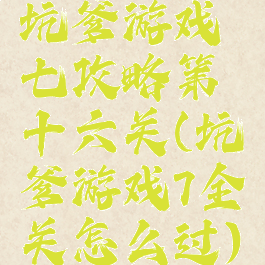 坑爹游戏
七攻略第
十六关(坑
爹游戏7全
关怎么过)